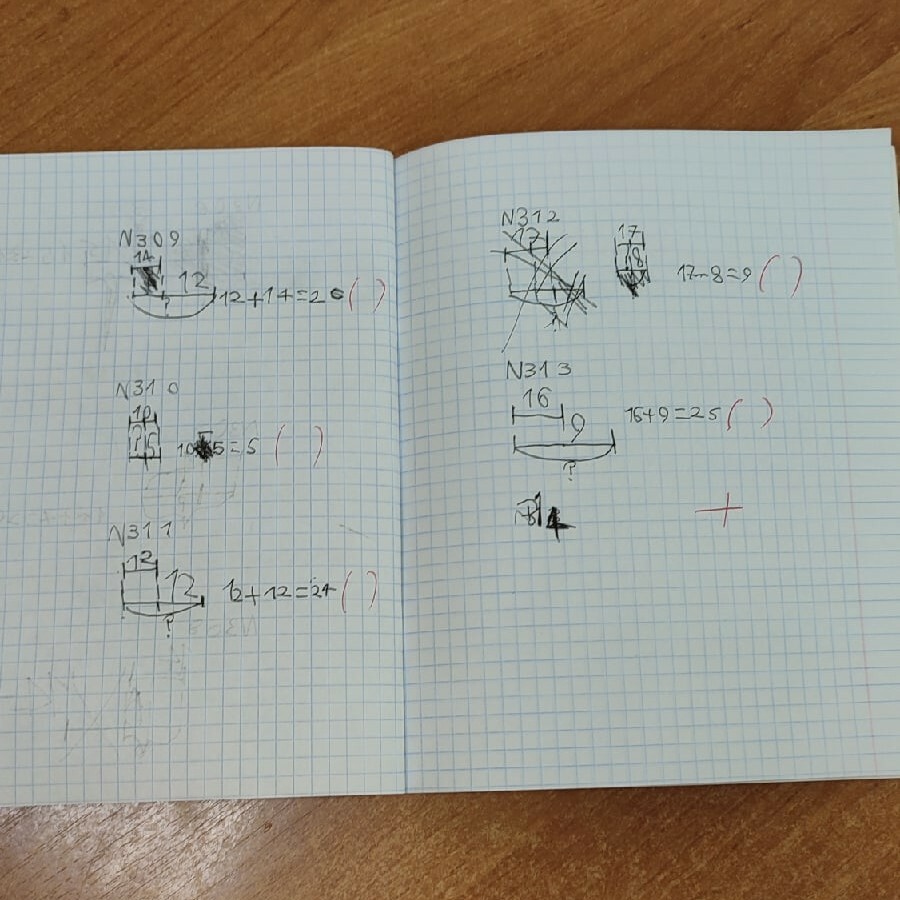 N309
14
12
?
12+14=26()
N310
10
? 5
10-5=5 ()
N311
12
12
12+12=24()
?
N312
17
17
? 8
17-8=9()
N313
16
9
16+9=25()
?
+